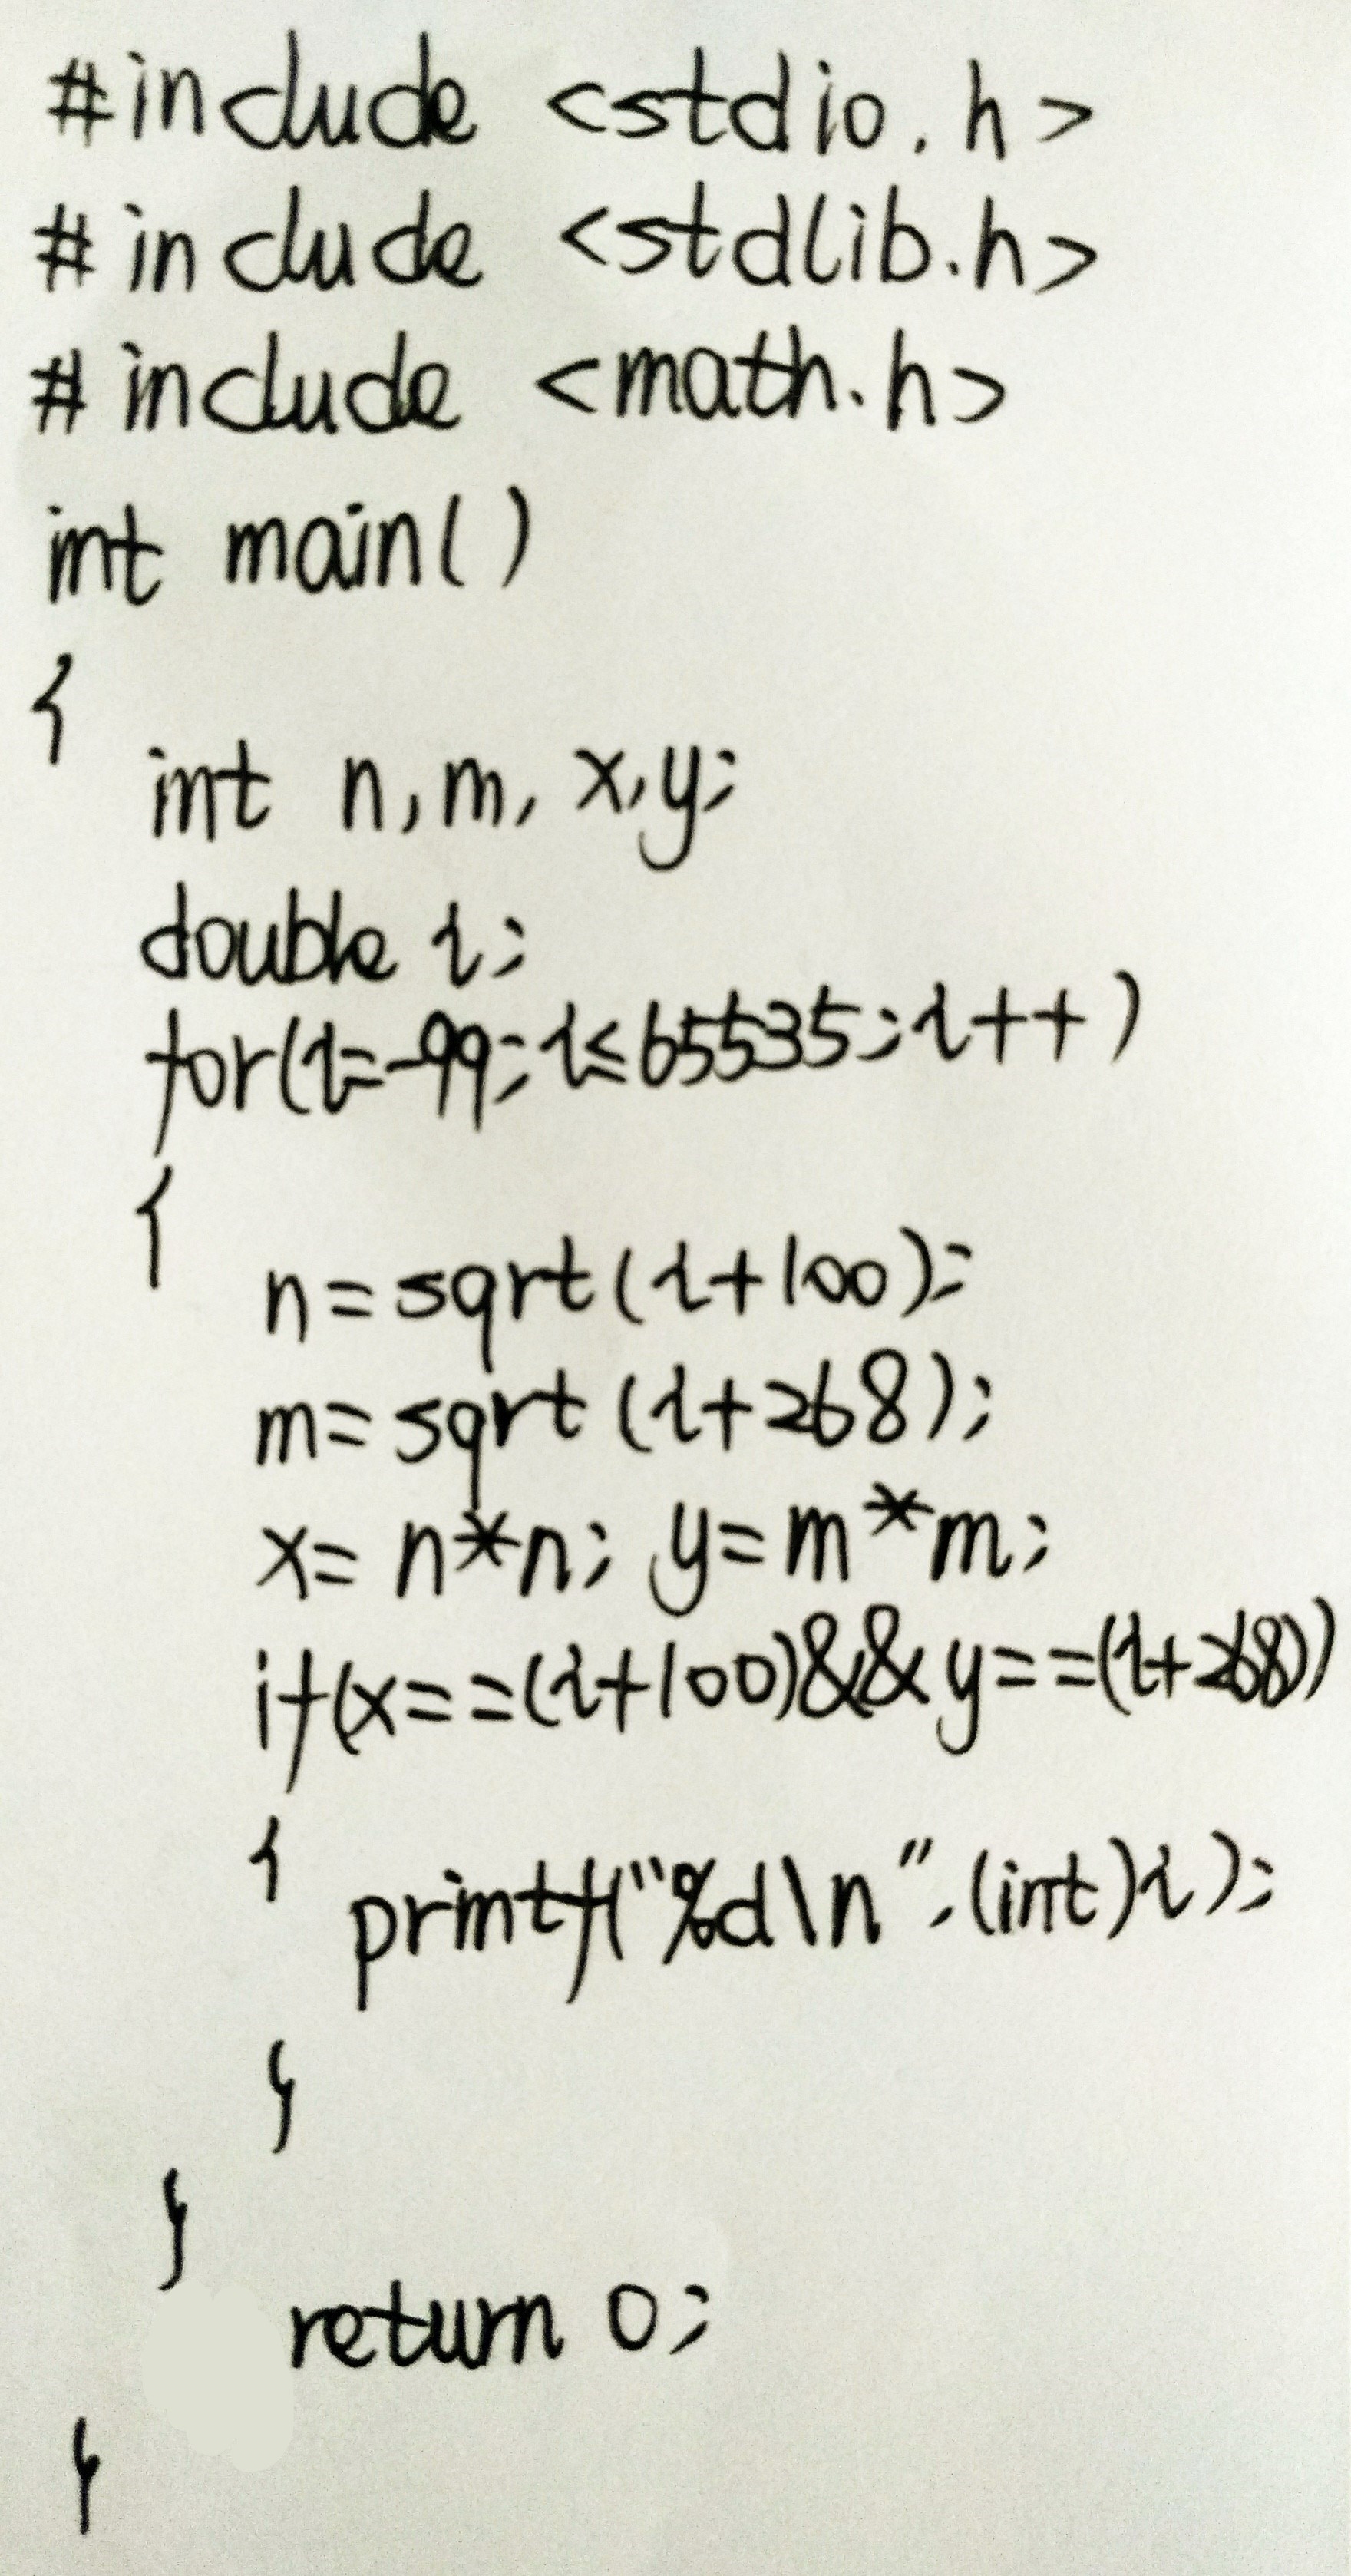 #include <stdio.h>
#include <stdlib.h>
#include <math.h>
int main()
{
int n,m,x,y;
double i;
for(i=-99;i≤65535;i++)
{
n=sqrt(i+100);
m=sqrt(i+268);
x=n*n; y=m*m;
if(x==(i+100)&&y==(i+268))
{ printf("%d\n",(int)i);
}
}
return 0;
}